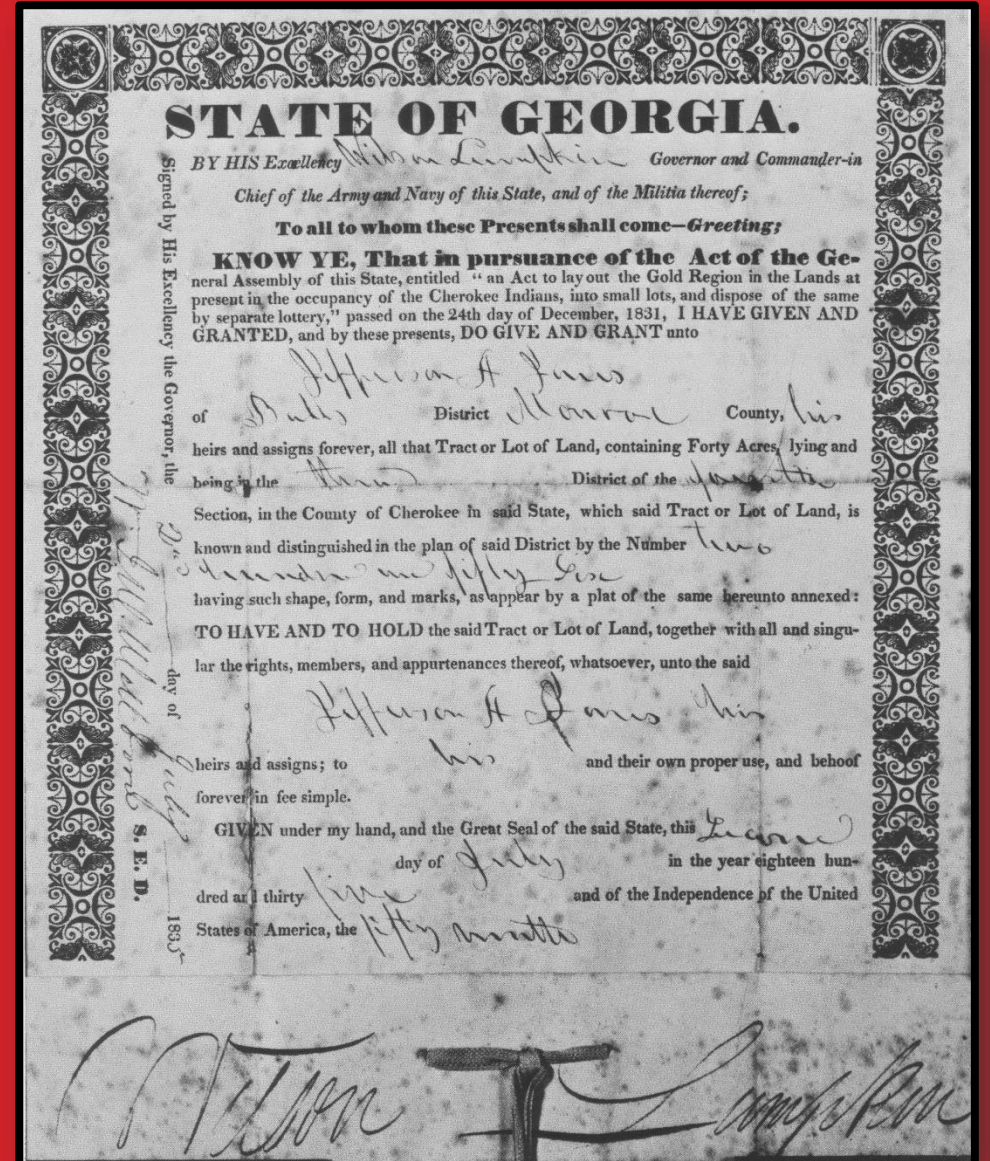 STATE OF GEORGIA.
BY HIS Excellency Wilson Lumpkin Governor and Commander-in
Chief of the Army and Navy of this State, and of the Militia thereof;
To all to whom these Presents shall come—Greeting;
KNOW YE, That in pursuance of the Act of the Ge-
neral Assembly of this State, entitled “ an Act to lay out the Gold Region in the Lands at
present in the occupancy of the Cherokee Indians, into small lots, and dispose of the same
by separate lottery,” passed on the 24th day of December, 1831, I HAVE GIVEN AND
GRANTED, and by these presents, DO GIVE AND GRANT unto
Jefferson A
of Butts District Monroe County, his
heirs and assigns forever, all that Tract or Lot of Land, containing Forty Acres, lying and
being in the third District of the fourth
Section, in the County of Cherokee in said State, which said Tract or Lot of Land, is
known and distinguished in the plan of said District by the Number two
hundred and fifty six
having such shape, form, and marks, as appear by a plat of the same hereunto annexed:
TO HAVE AND TO HOLD the said Tract or Lot of Land, together with all and singu-
lar the rights, members, and appurtenances thereof, whatsoever, unto the said
Jefferson A his
heirs and assigns; to his and their own proper use, and behoof
forever in fee simple.
GIVEN under my hand, and the Great Seal of the said State, this Second
day of July in the year eighteen hun-
dred and thirty five and of the Independence of the United
States of America, the fifty ninth
Signed by His Excellency the Governor, the 2d day of July 1835
S. E. D.
Wilson Lumpkin